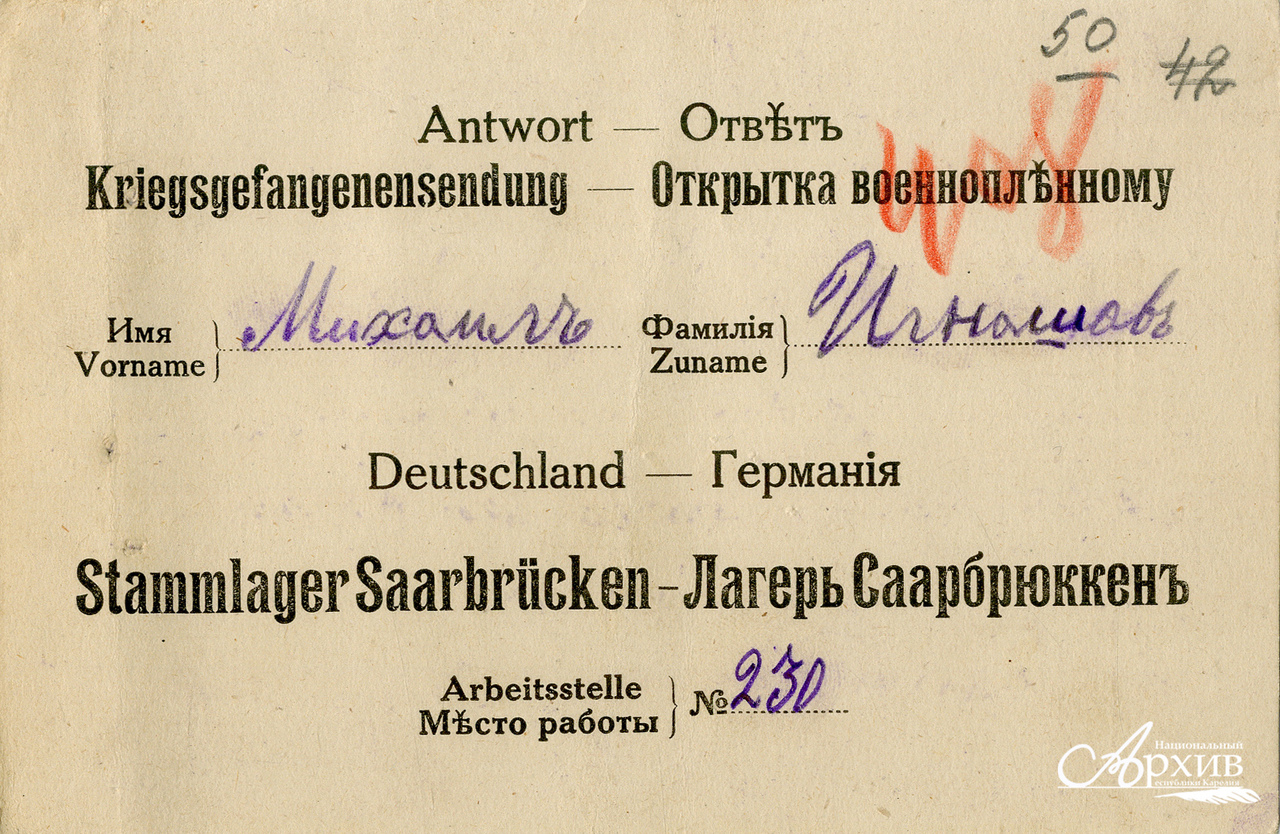 50
42
Antwort — Отвѣтъ
Kriegsgefangenensendung — Открытка военноплѣнному
Имя Михаилъ Фамилія Игнашовъ
Vorname Zuname
Deutschland — Германія
Stammlager Saarbrücken – Лагерь Саарбрюккенъ
Arbeitsstelle № 230
Мѣсто работы
Национальный
Архив
Республики Карелия